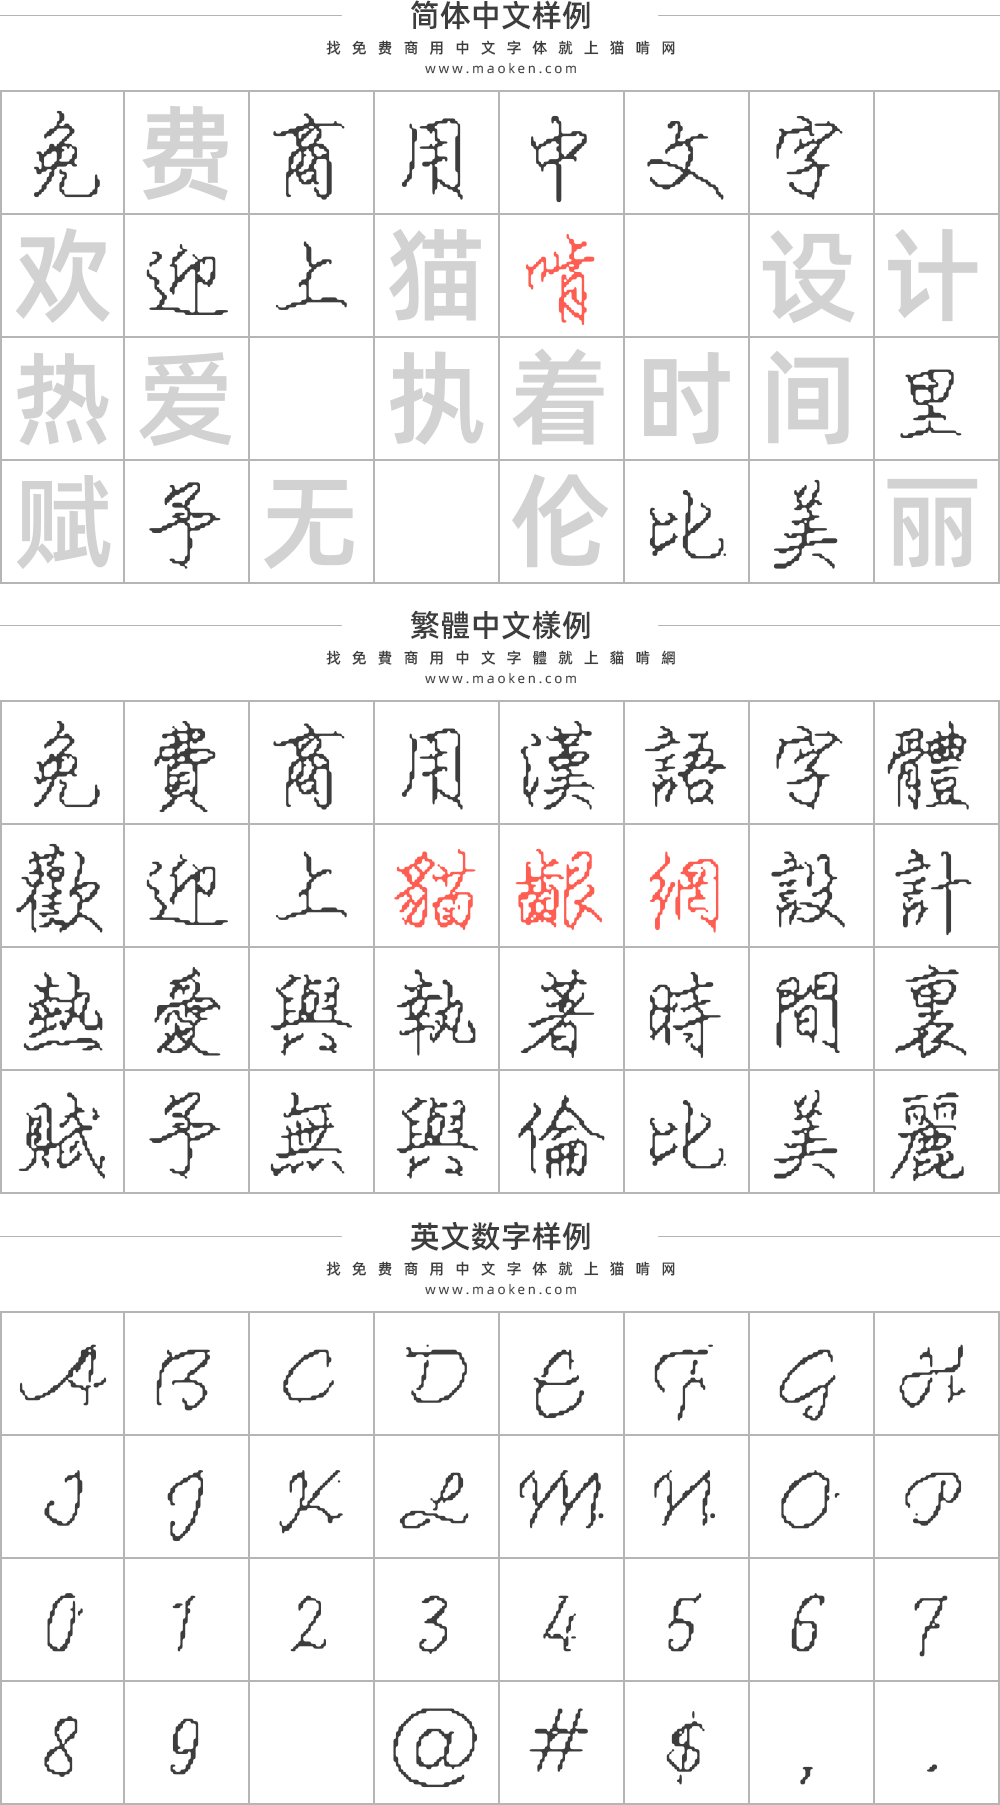 简体中文样例
找免费商用中文字体就上猫啃网
www.maoken.com
免费商用中文字
欢迎上猫啃 设计
热爱 执着时间里
赋予无 伦比美丽
繁體中文樣例
找免費商用中文字體就上貓啃網
www.maoken.com
免費商用漢語字體
歡迎上貓齦網設計
熱愛與執著時間裏
賦予無與倫比美麗
英文数字样例
找免费商用中文字体就上猫啃网
www.maoken.com
A B C D E F G H
I J K L M N O P
0 1 2 3 4 5 6 7
8 9 @ # $ , .